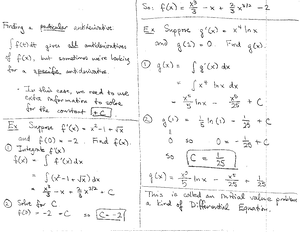 Finding a particular antiderivative
∫ f(t)dt gives all antiderivatives
of f(x), but sometimes we're looking
for a specific antiderivative.
• In this case, we need to use
extra information to solve
for the constant +C
Ex Suppose f'(x) = x² - 1 + √x
and f(0) = -2. Find f(x).
① Integrate f'(x)
f(x) = ∫ f'(x) dx
= ∫ (x² - 1 + √x) dx
= x³/3 - x + 2/3 x^(3/2) + C
② Solve for C.
f(0) = -2 = C so C = -2
So: f(x) = x³/3 - x + 2/3 x^(3/2) - 2
Ex Suppose g'(x) = x⁴ ln x
and g(1) = 0 Find g(x).
① g(x) = ∫ g'(x) dx
= ∫ x⁴ ln x dx
= x⁵/5 ln x - x⁵/25 + C
② g(1) = 1/5 ln(1) - 1/25 + C
0 so 0 = -1/25 + C
so C = 1/25
g(x) = x⁵/5 ln x - x⁵/25 + 1/25
This is called an initial value problem
a kind of Differential Equation.